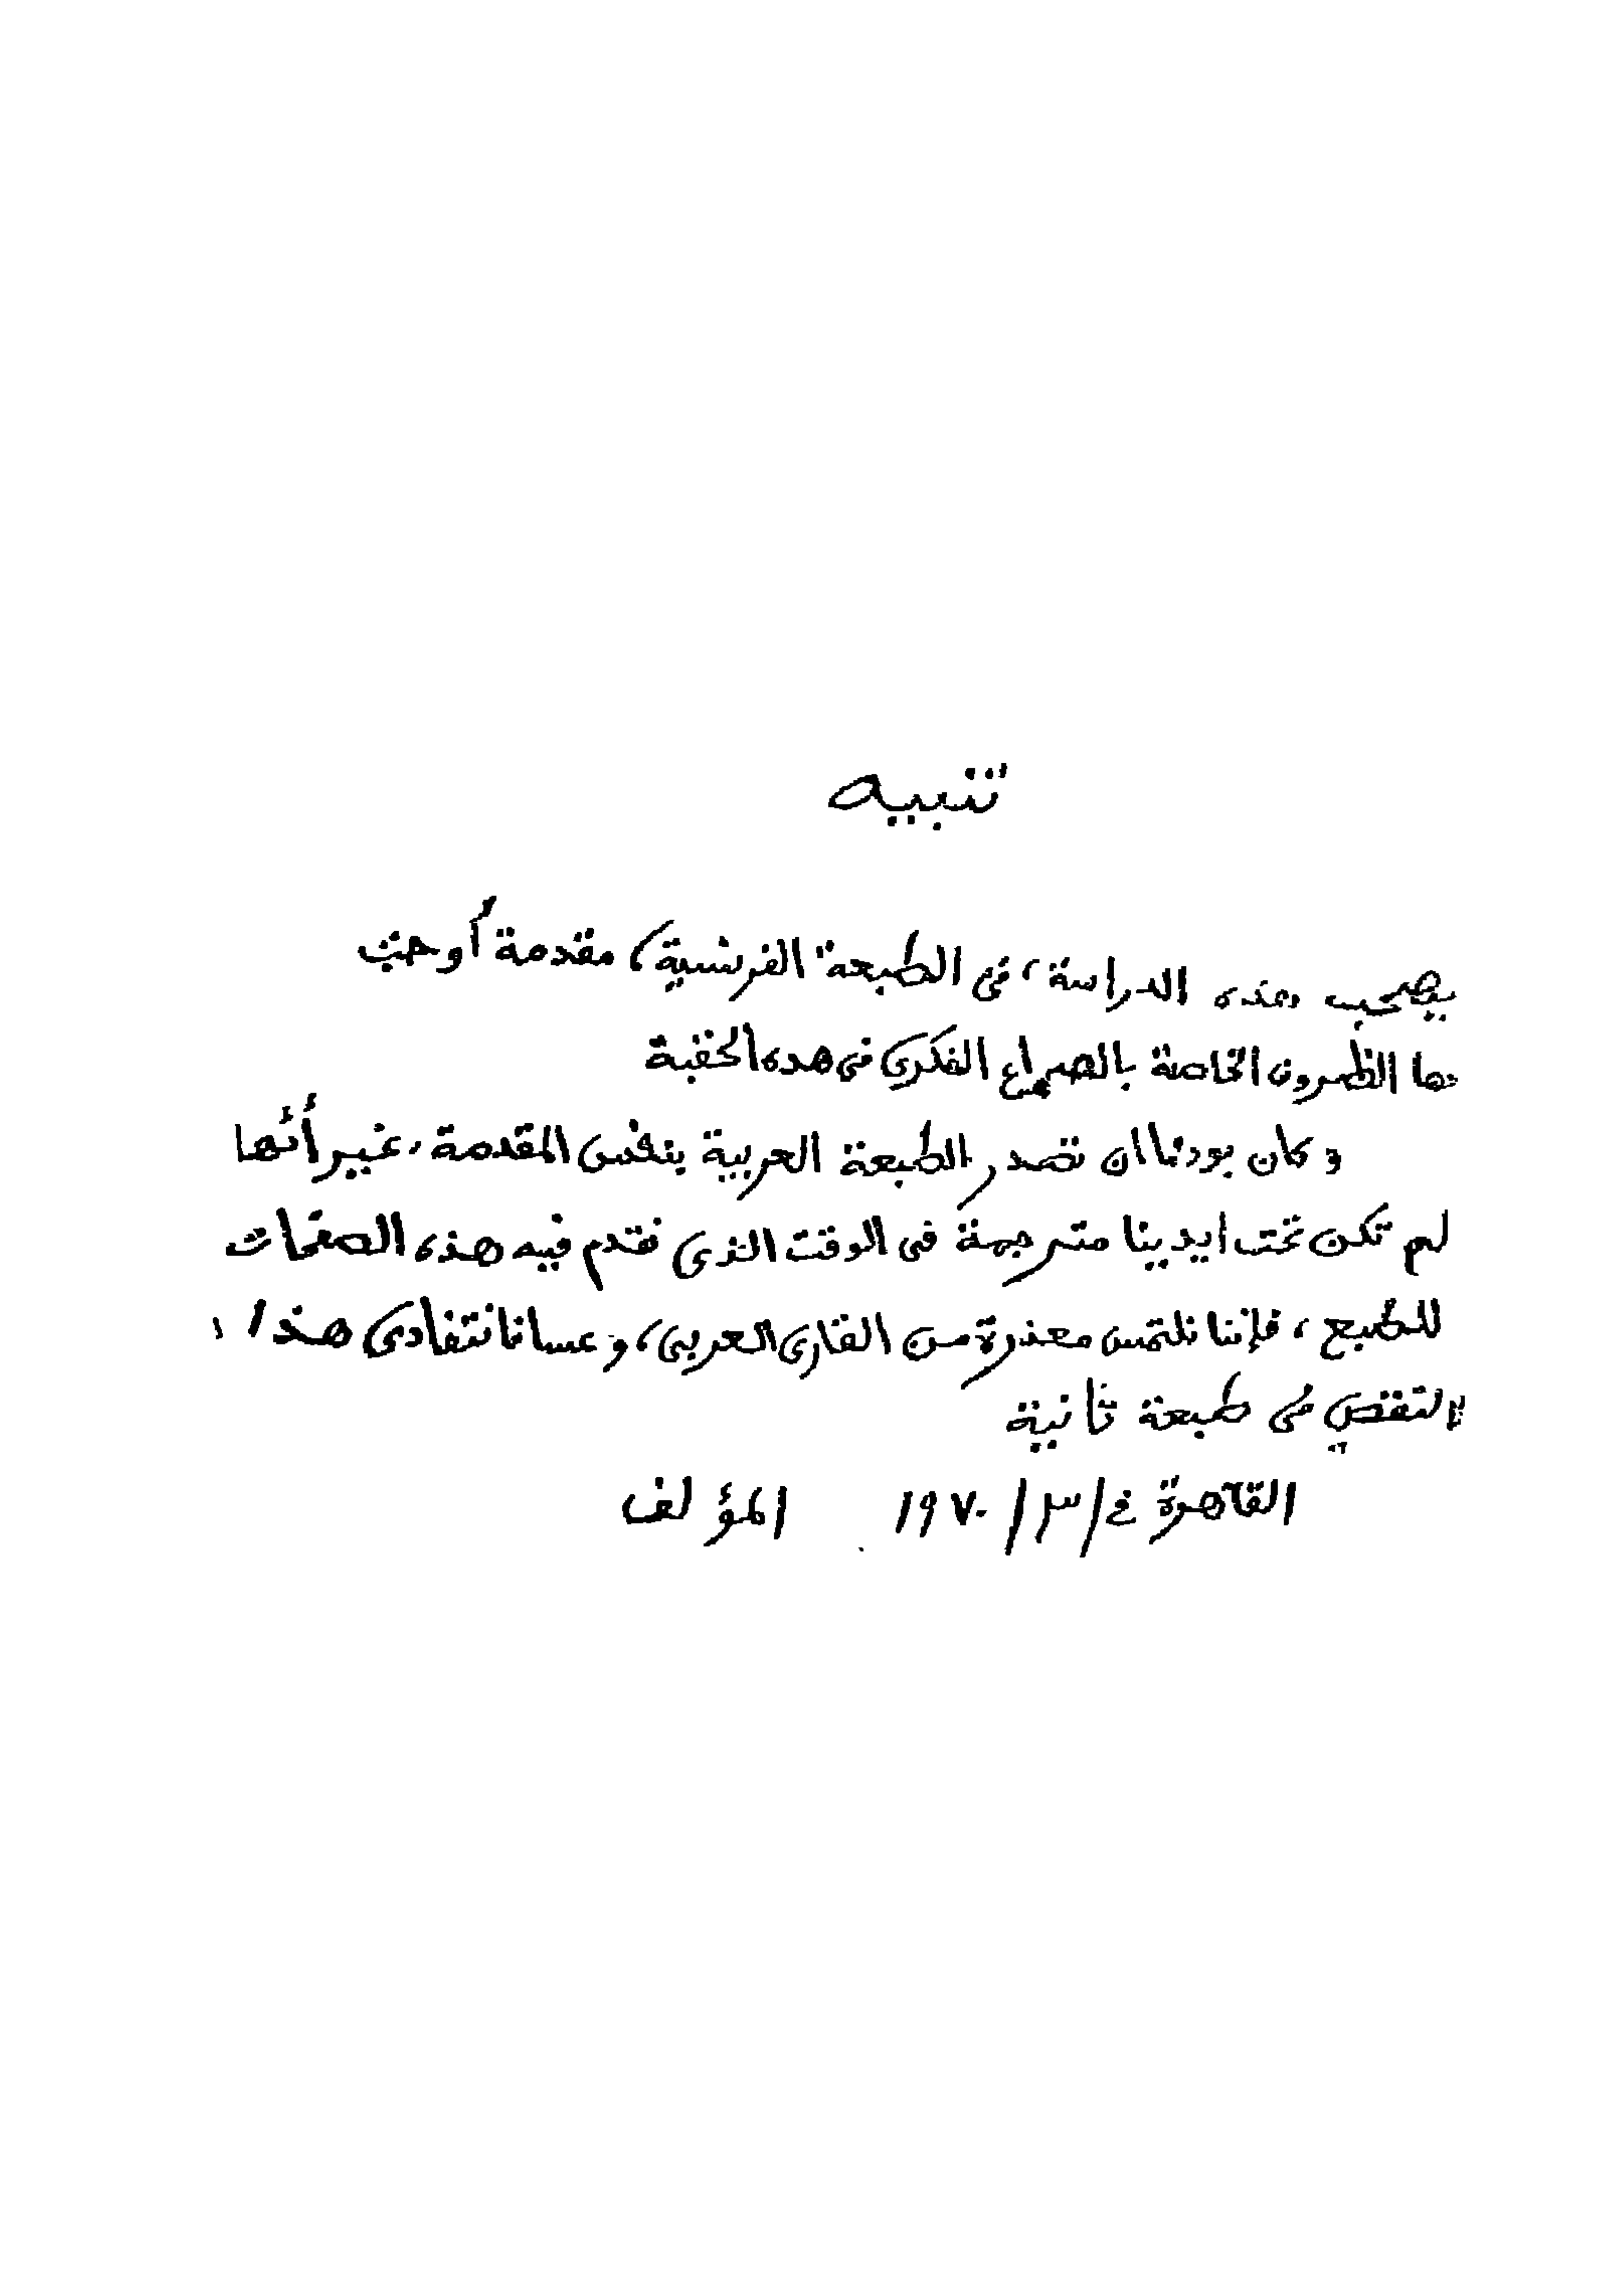 تنبيه
يصحب هذه الدراسة، في الطبعة الفرنسية، مقدمة أوحت
بها الظروف الخاصة بالصراع الفكري في هذه الحقبة
وكان بودنا ان تصدر الطبعة العربية بنفس المقدمة، غير أنها
لم تكن تحت ايدينا مترجمة في الوقت الذي نقدم فيه هذه الصفحات
للطبع، فإننا نلتمس معذرة من القارئ العربي، وعسانا نتفادى هذا
النقص في طبعة ثانية
القاهرة في /٣/ ١٩٧٠ المؤلف